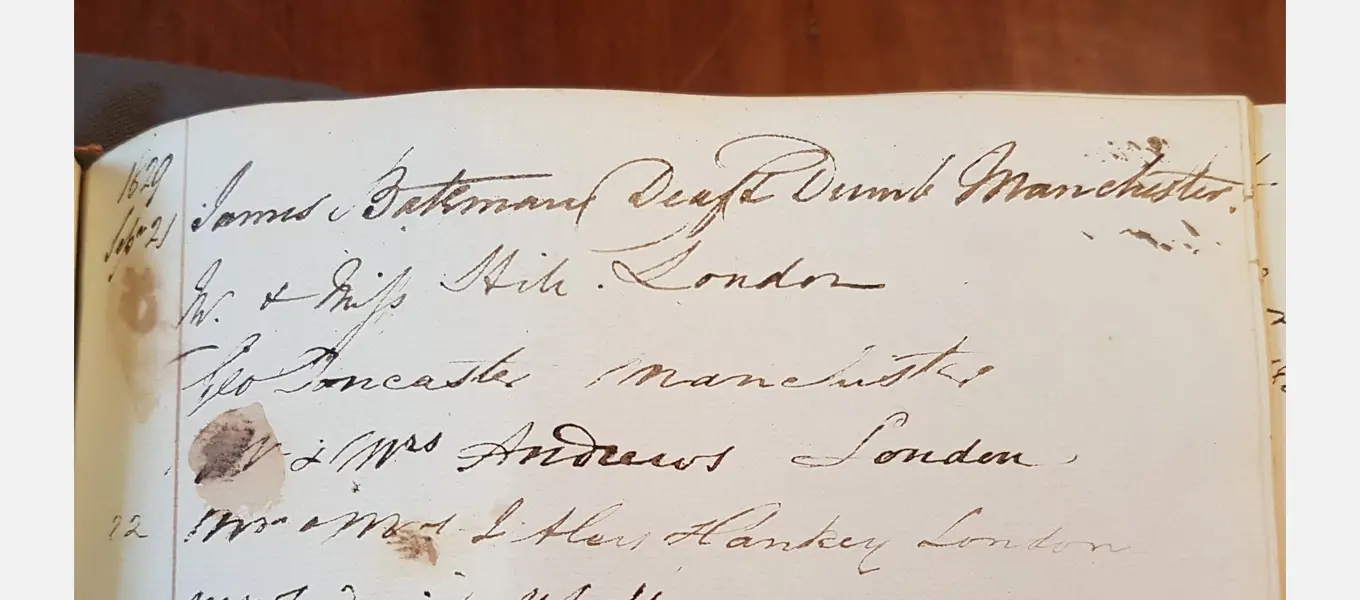 1829
Sepr 21 James Bateman Deaf & Dumb Manchester.
Mr. & Miss Hill. London
Geo Doncaster Manchester
& Mrs Andrews London
22 Mr & Mrs Hankey London